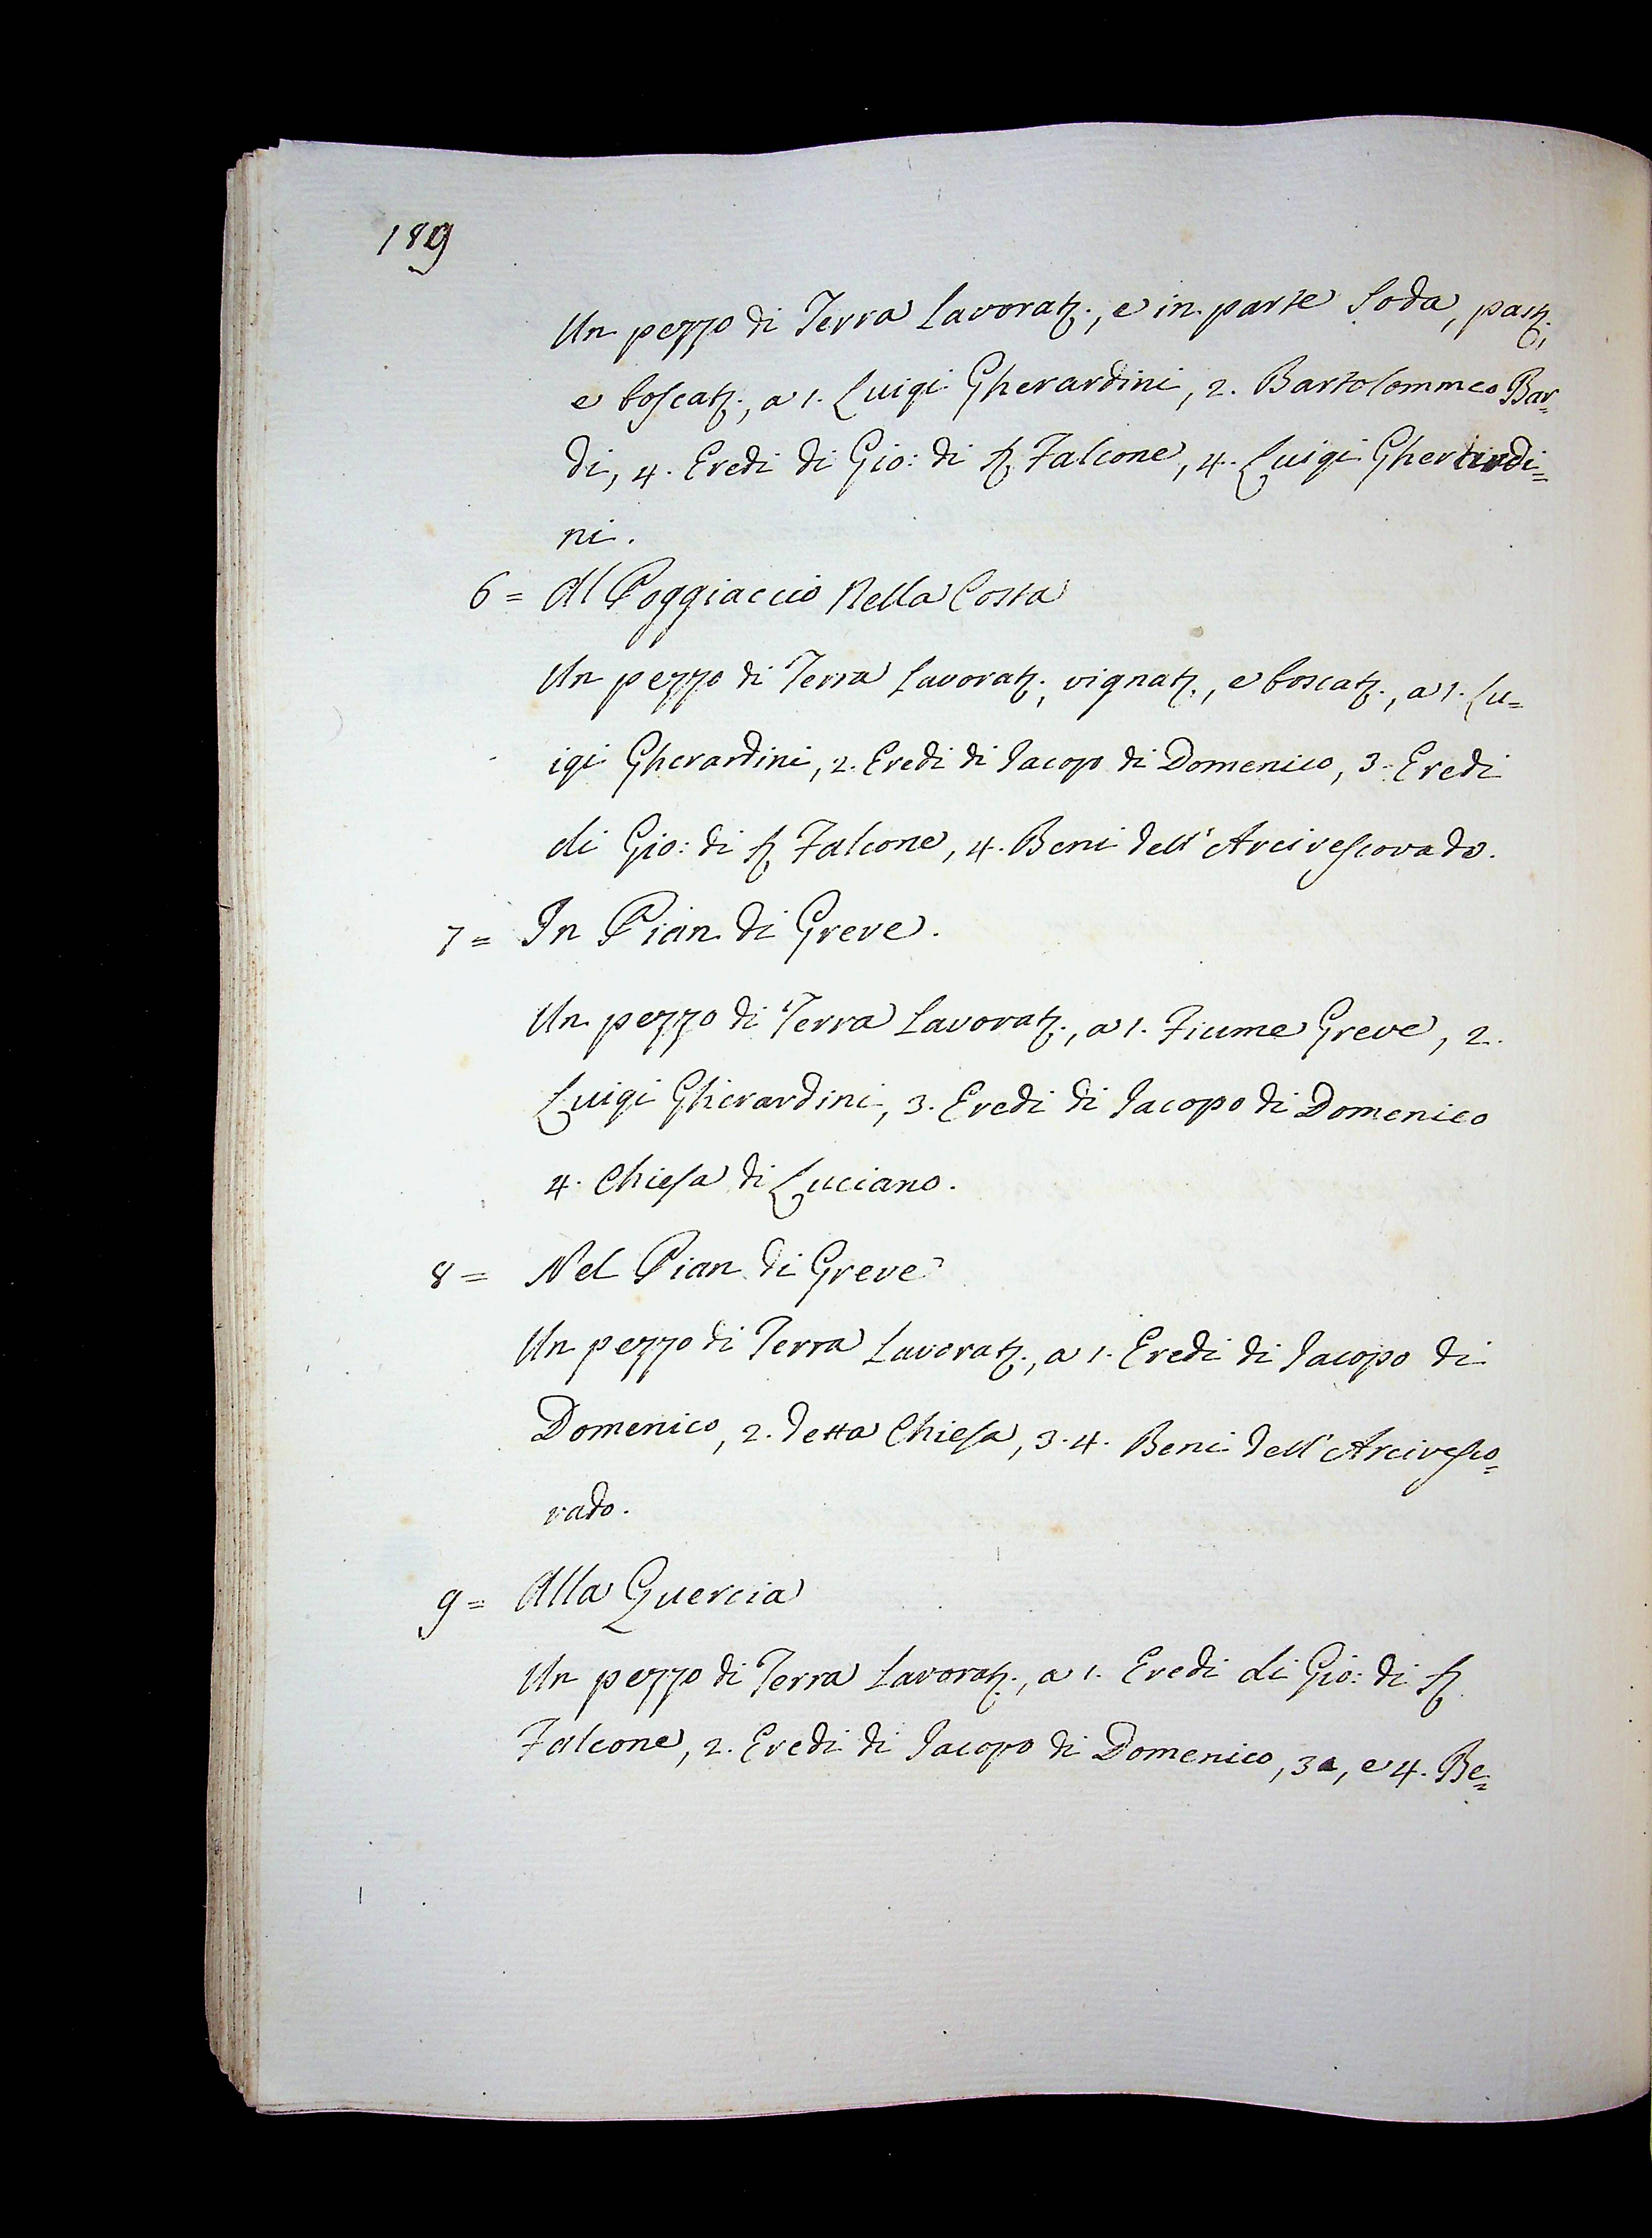 189
Un pezzo di Terra Lavorat.ª, e in parte Soda, past.ª,
e boscat.ª, a 1. Luigi Gherardini, 2. Bartolommeo Bar-
di, 4. Eredi di Gio: di S.r Falcone, 4. Luigi Gherardi=
ni.
6= Al Poggiaccio Nella Costa
Un pezzo di Terra Lavorat.ª, vignat.ª, e boscat.ª, a 1. Lu=
igi Gherardini, 2. Eredi di Jacopo di Domenico, 3. Eredi
di Gio: di S.r Falcone, 4. Beni dell'Arcivescovado.
7= In Pian di Greve.
Un pezzo di Terra Lavorat.ª, a 1. Fiume Greve, 2.
Luigi Gherardini, 3. Eredi di Jacopo di Domenico
4. Chiesa di Luciano.
8= Nel Pian di Greve
Un pezzo di Terra Lavorat.ª, a 1. Eredi di Jacopo di
Domenico, 2. detta Chiesa, 3. 4. Beni dell'Arcivesco=
vado.
9= Alla Quercia
Un pezzo di Terra Lavorat.ª, a 1. Eredi di Gio: di S.r
Falcone, 2. Eredi di Jacopo di Domenico, 3, e 4. Be=